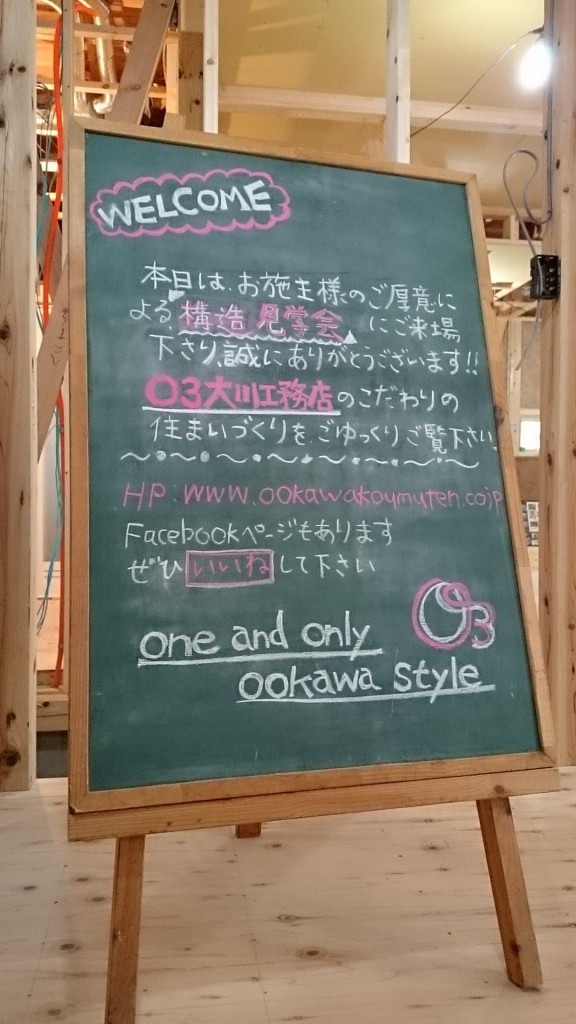 WELCOME
本日は、お施主様のご厚意に
よる 構造 見学会 にご来場
下さり、誠にありがとうございます!!
O3大川工務店のこだわりの
住まいづくりを、ごゆっくりご覧下さい。
HP:www.ookawakoumuten.co.jp
Facebookページもあります
ぜひいいねして下さい
O3
one and only
ookawa style